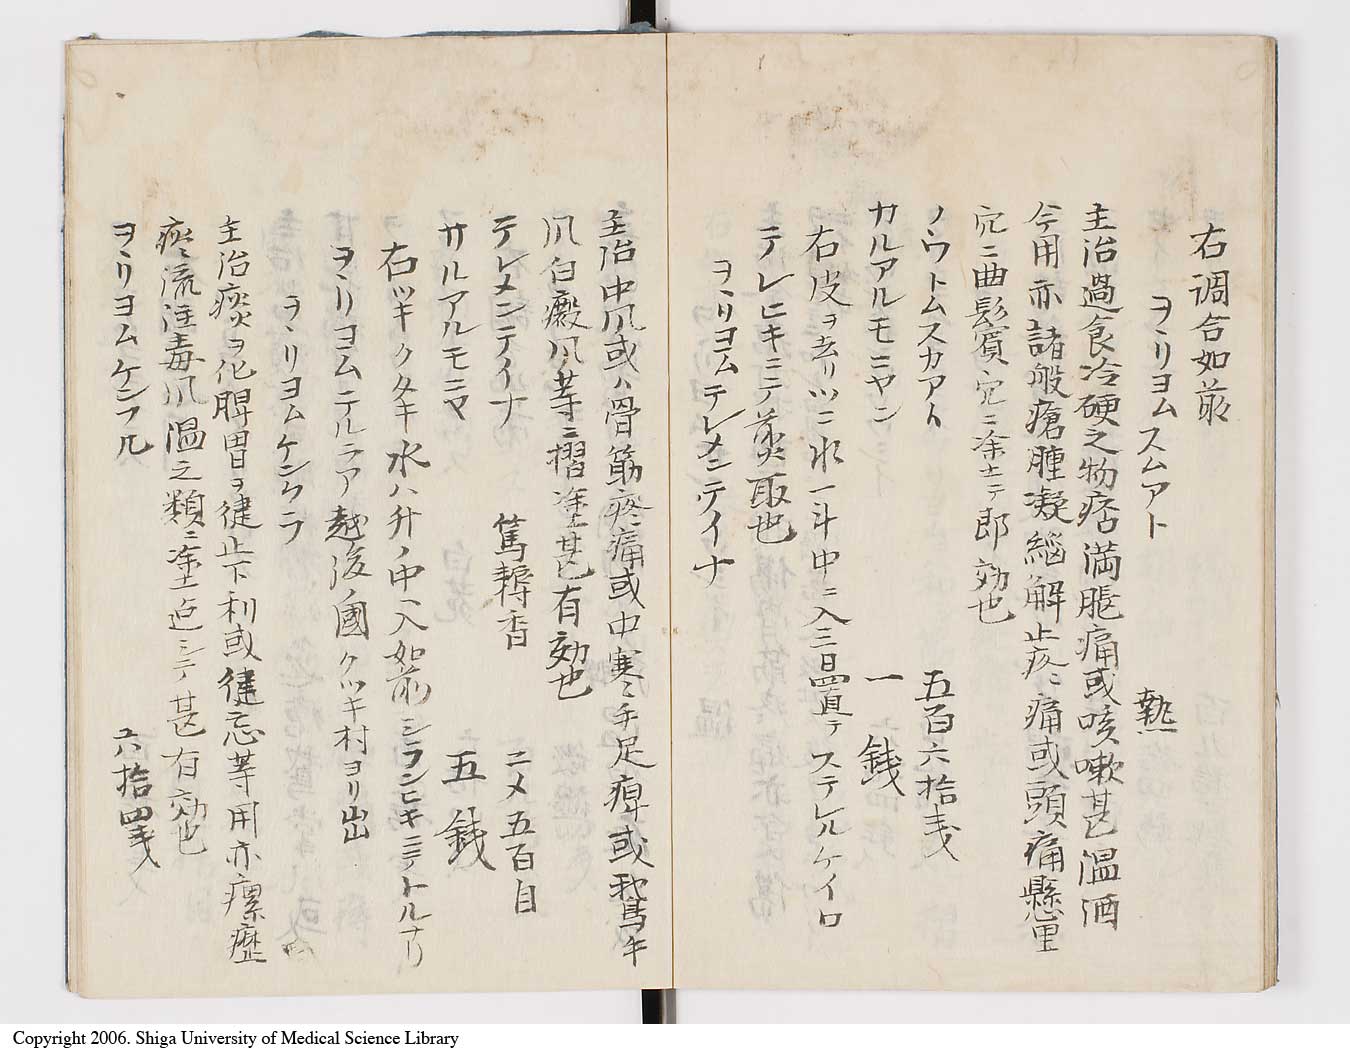 右調合如前
ヲヽリヨムスムアト　熱
主治過食冷硬之物痞満脹痛或咳嗽甚温酒
今用亦諸般瘡腫凝緇解止疼痛或頭痛懸里
穴ニ曲髪賓穴ニ塗テ即効也
ノウトムスカアト　五百六拾戔
カルアルモニヤン　一銭
右皮ヲ去リツニ水一斗中ニ入三日置テステレルケイロ
テレヒキニテ蒸取也
ヲヽリヨムテレメンテイナ
主治中風或ハ骨筋疼痛或中寒手足痺或鵞
爪白癜風等ニ摺塗甚有効也
テレメンテイナ　篤耨香　二メ五百目
サルアルモニマ　五銭
右ツキクタキ水八升ノ中入如前シランヒキニテトルナリ
ヲヽリヨムテルラア越後ノ國クツキ村ヨリ出
ヲヽリヨムケンケラ
主治痰ヲ化脾胃ヲ健止下利或健忘等用亦瘰癧
疼流注毒風温之類ニ塗テ甚有効也
ヲヽリヨムケンフル　六拾四戔
Copyright 2006. Shiga University of Medical Science Library